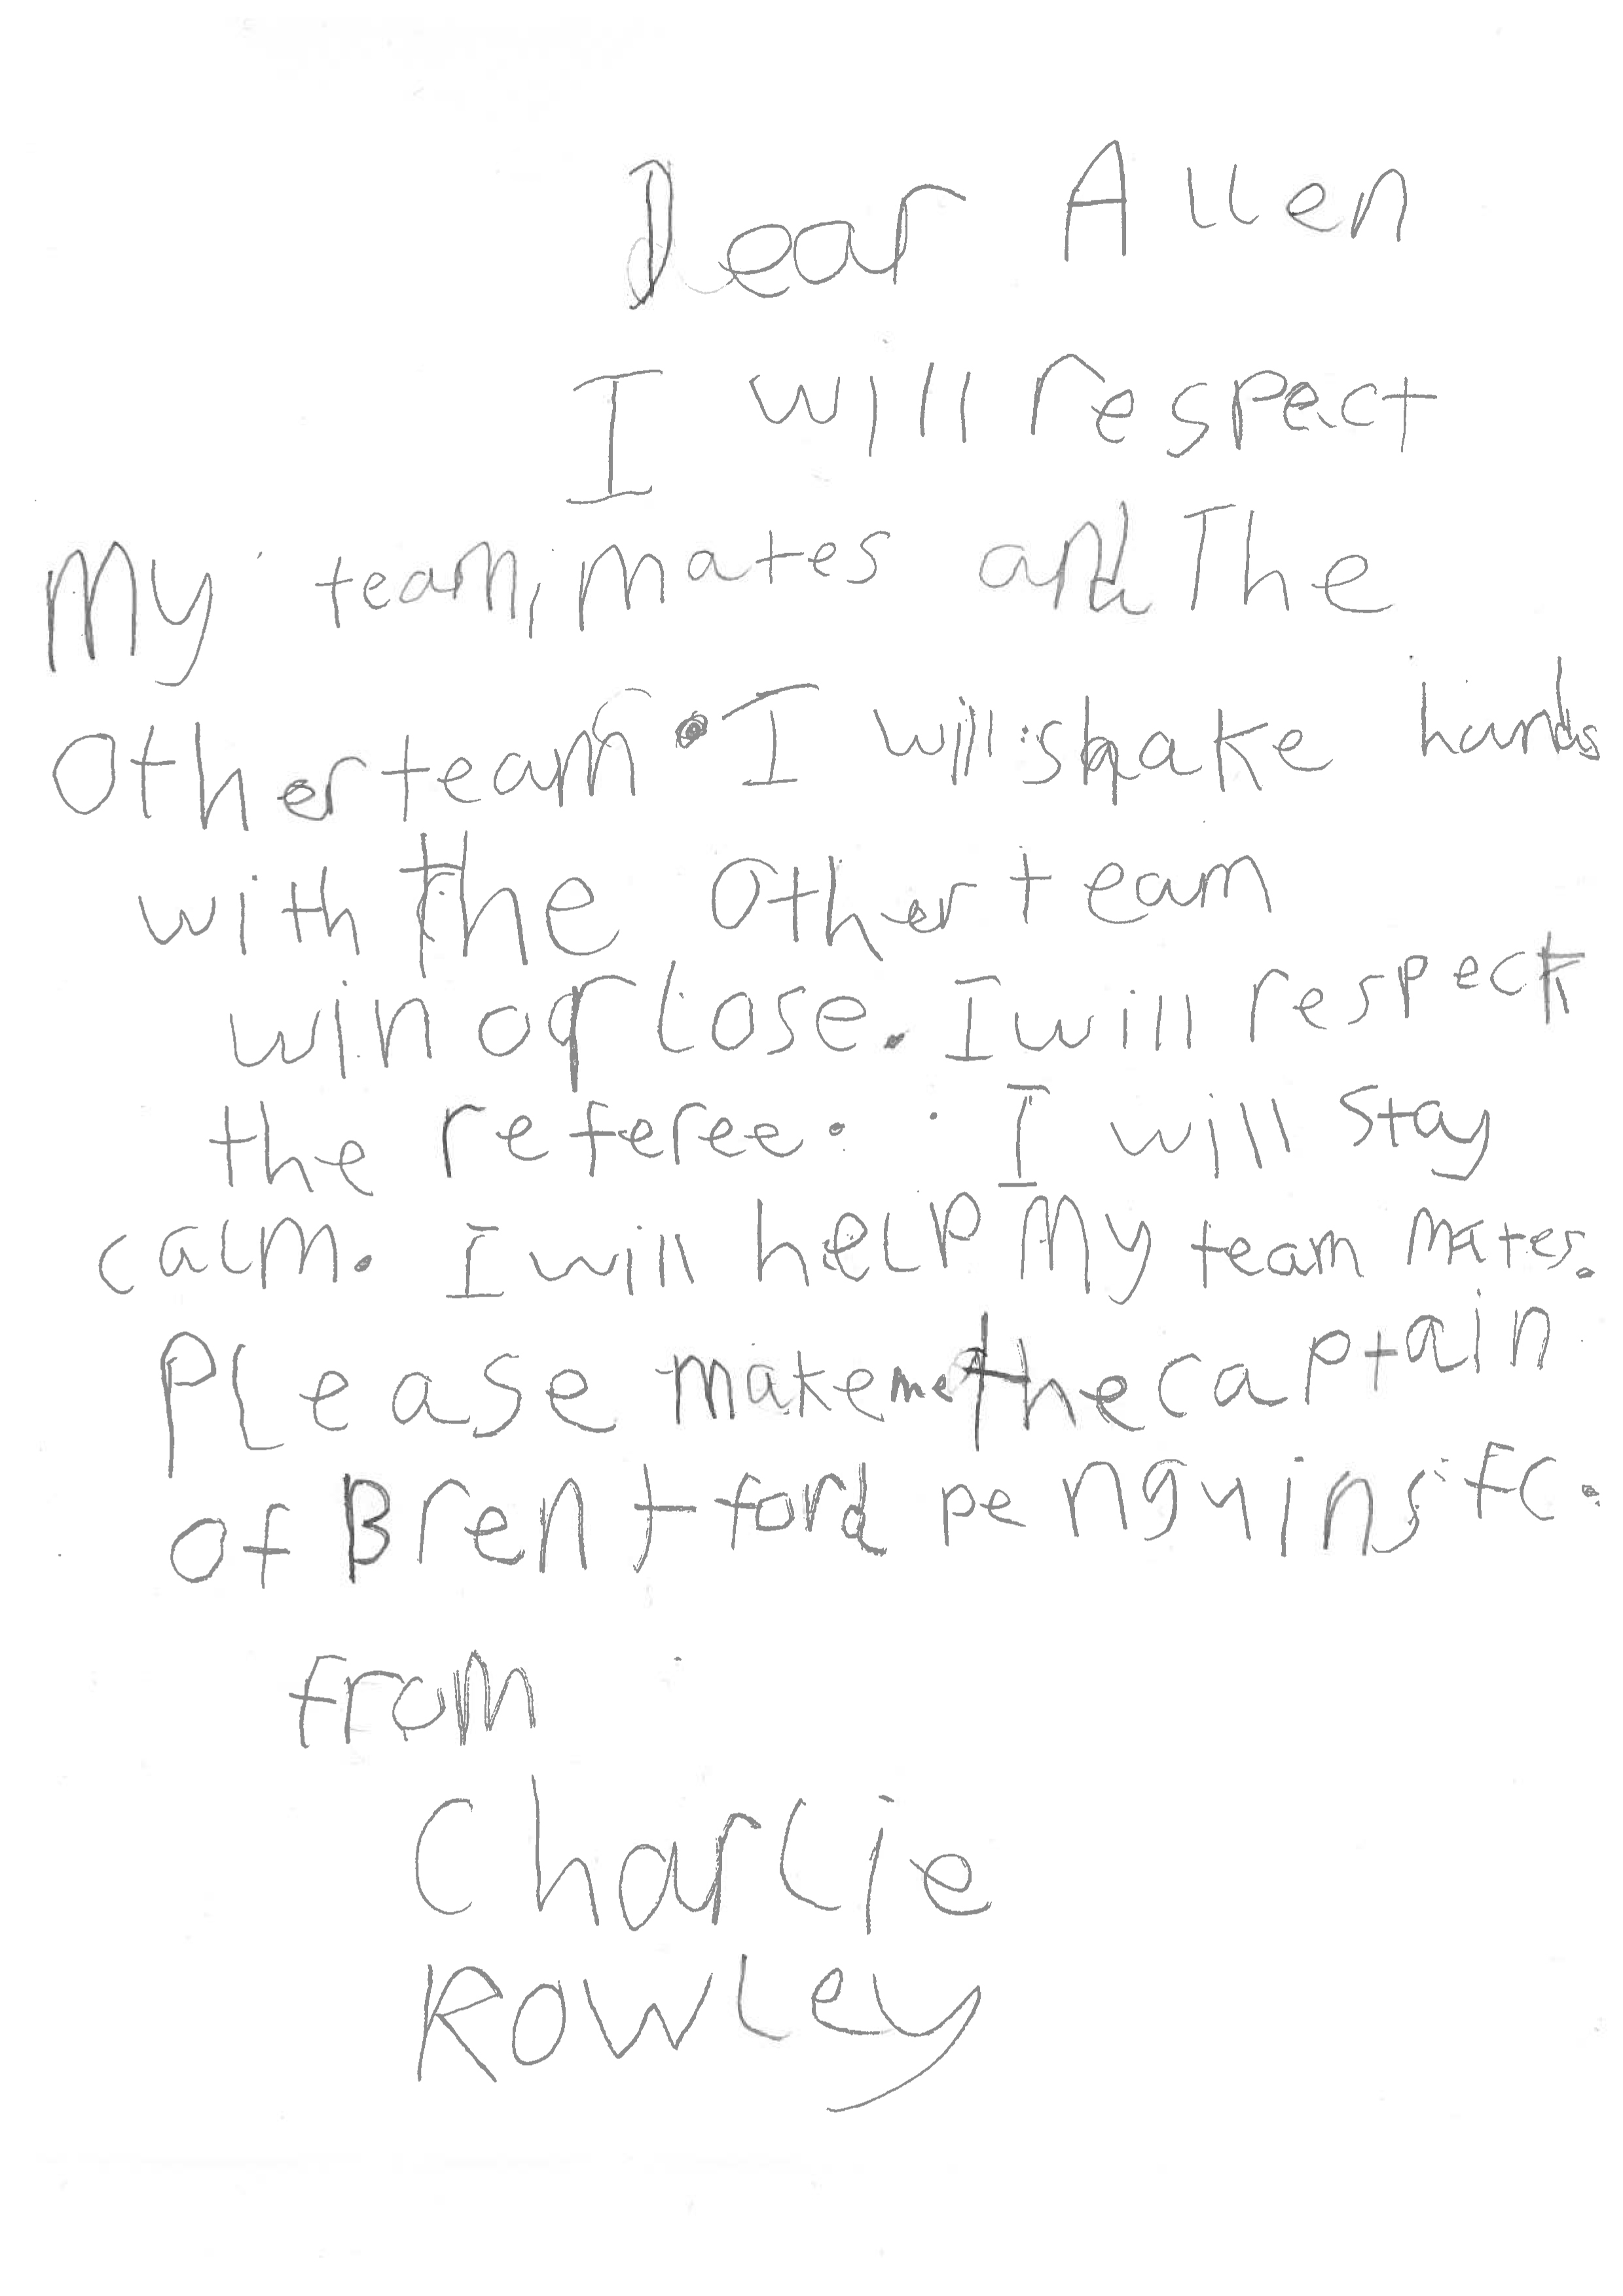 Dear Allen
I will respect
My team, mates and The
other team. I will shake hands
with the other team
win or lose. I will respect
the referee. I will stay
calm. I will help My team mates.
Please make me the captain
of Brentford penguins FC.
from
Charlie
Rowley